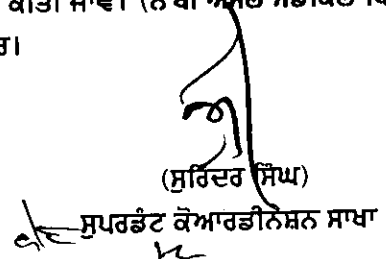 ਕੀਤੀ ਜਾਵੇ।
ਰ।
(ਸੁਰਿੰਦਰ ਸਿੰਘ)
ਸੁਪਰਡੰਟ ਕੋਆਰਡੀਨੇਸ਼ਨ ਸਾਖਾ